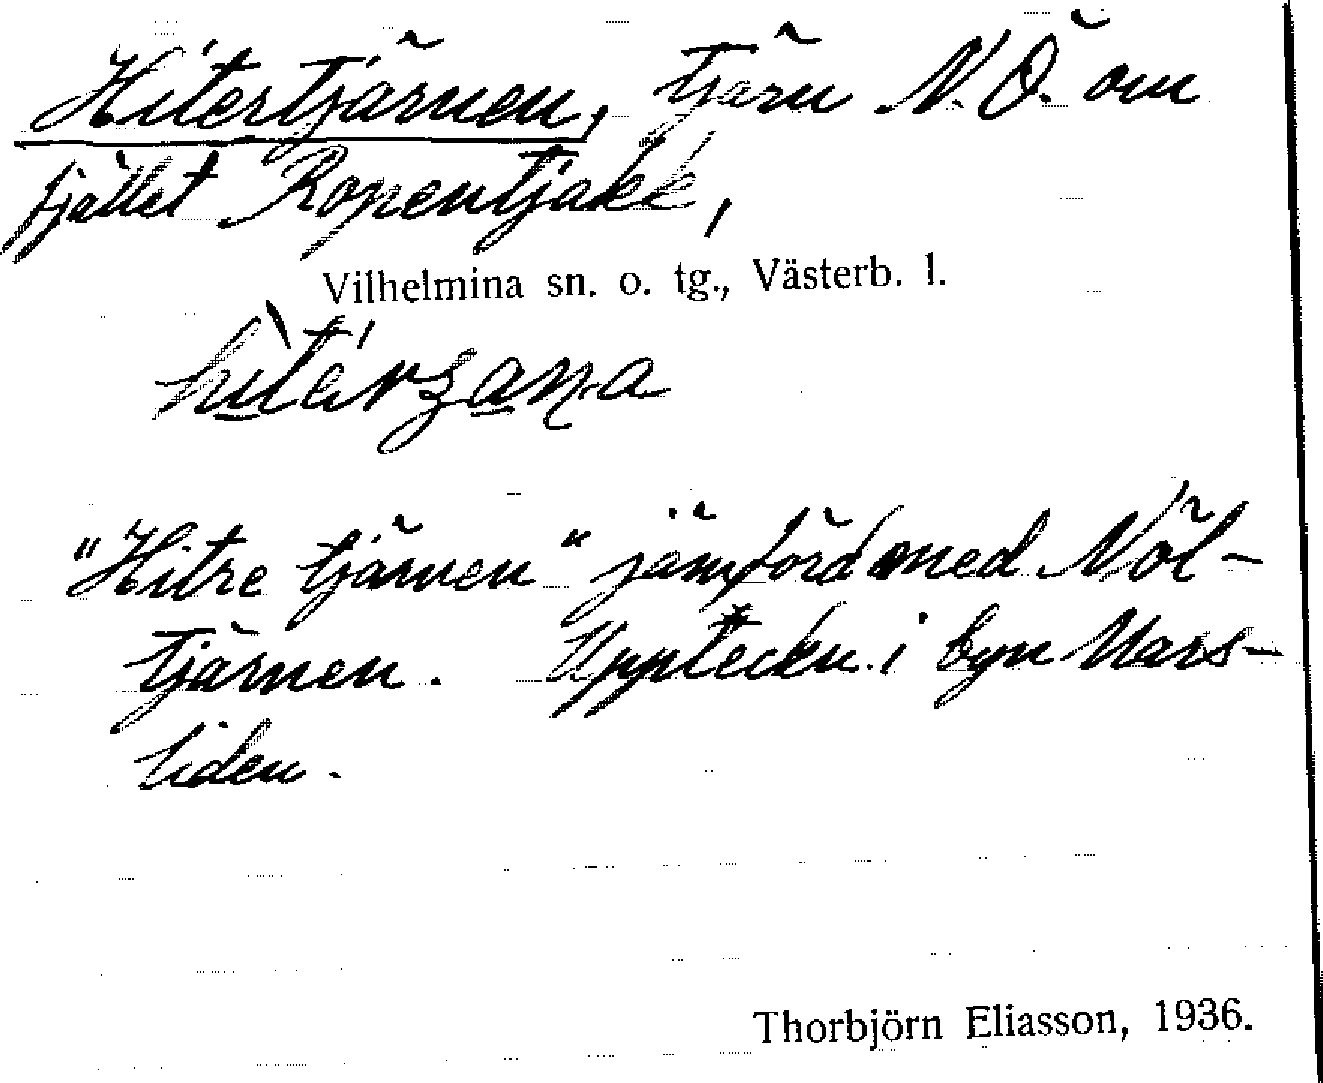 Hitertjärnen, tjärn N.Ö. om
fjället Ropentjakk,
Vilhelmina sn. o. tg., Västerb. l.
"Hitre tjärnen" jämförd med Nöl-
tjärnen. Uppteckn. i byn Mars-
liden.
Thorbjörn Eliasson, 1936.